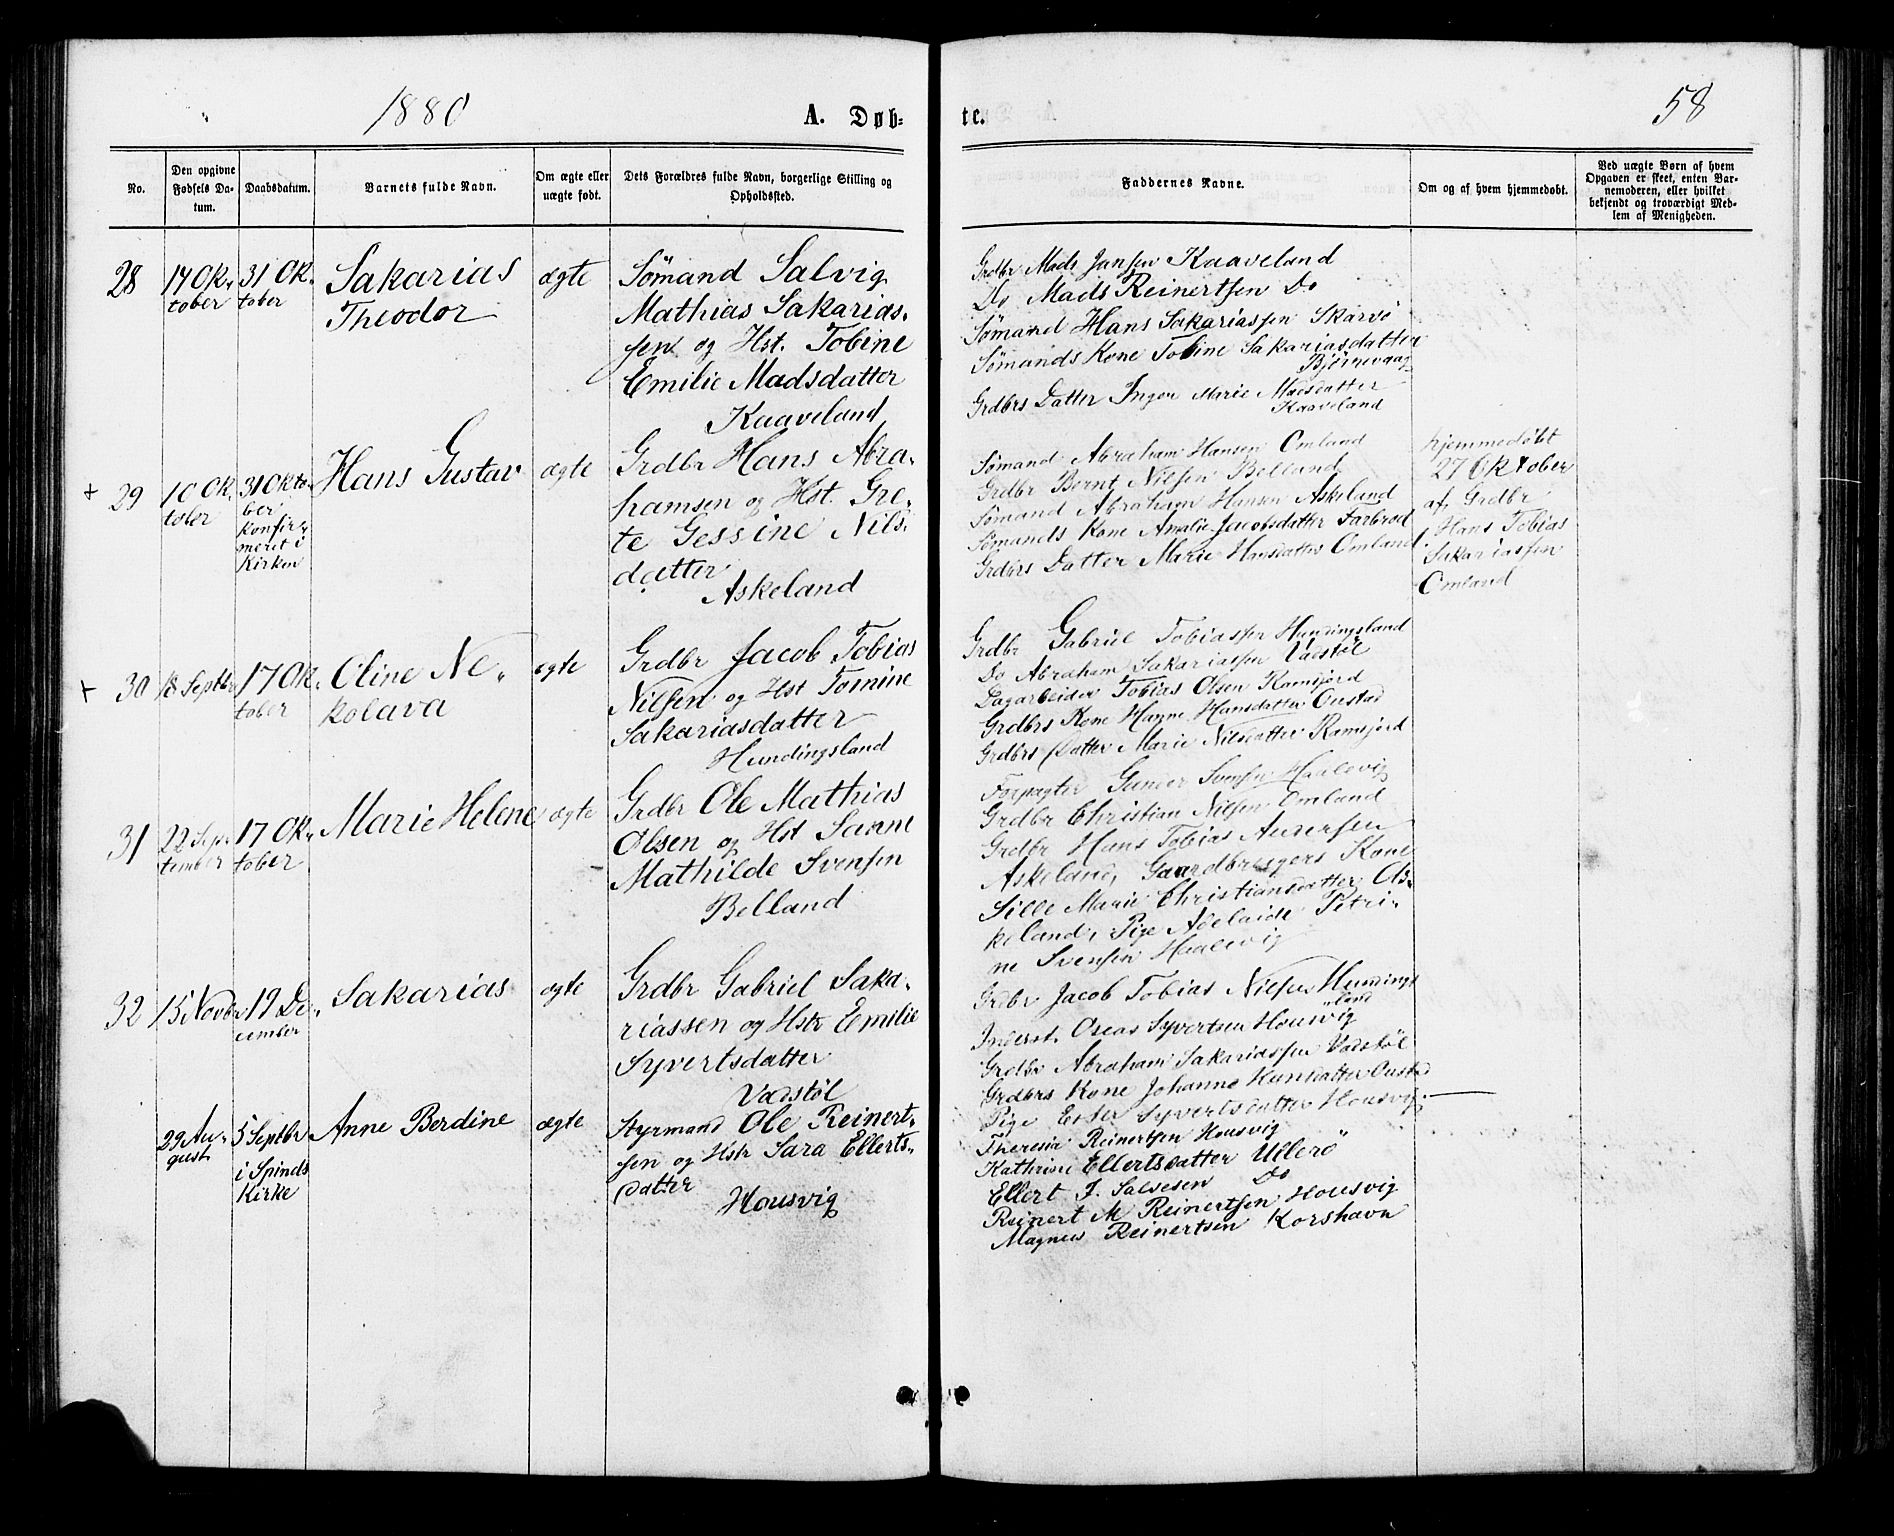 1880
A. Døb-
te.
58
No.
Den opgivne
Fødsels Da-
tum.
Daabsdatum.
Barnets fulde Navn.
Om ægte eller
uægte født.
Dets Forældres fulde Navn, borgerlige Stilling og
Opholdssted.
Faddernes Navne.
Om og af hvem hjemmedøbt.
Ved uægte Børn af hvem
Opgaven er skeet, enten Bar-
nemoderen, eller hvilket
bekjendt og troværdigt Med-
lem af Menigheden.
28
17 Ok-
tober
31 Ok-
tober
Sakarias
Theodor
ægte
Sömand Salvig
Mathias Sakarias-
sen og Hst. Tobine
Emilie Madsdatter
Kaaveland
Grdbr Mads Jansen Kaaveland
Do Mads Reinertsen Do
Sømand Hans Sakariassen Skarvö
Sømands Kone Tobine Sakariasdatter
Bjørnevaag
Grdbrs Datter Inger Marie Madsdatter
Kaaveland
+ 29
10 Ok-
tober
31 Okto-
ber
Konfir-
meret i
Kirken
Hans Gustav
ægte
Grdbr Hans Abra-
hamsen og Hst. Gre-
te Gessine Nils-
datter
Askeland
Sømand Abraham Hansen Omland
Grdbr Bernt Nilsen Belland
Sømand Abraham Hansen Askeland
Sømands Kone Amalie Jacobsdatter Farbrod
Grdbrs Datter Marie Hansdatter Omland
hjemmedöbt
27 Oktober
af Grdbr
Hans Tobias
Sakariassen
Omland
+ 30
18 Septbr
17 Ok-
tober
Oline Ne-
kolava
ægte
Grdbr Jacob Tobias
Nilsen og Hst Tomine
Sakariasdatter
Hundingsland
Grdbr Gabriel Tobiassen Hundingsland
Do Abraham Sakariassen Vadstöl
Dagarbeider Tobias Olsen Ramsjord
Grdbrs Kone Hanne Hansdatter Oustad
Grdbrs Datter Marie Nilsdatter Ramsjord
31
22 Sep-
tember
17 Ok-
tober
Marie Helene
ægte
Grdbr Ole Mathias
Olsen og Hst Sanne
Mathilde Svensen
Belland
Forpagter Gunder Svensen Haalevig
Grdbr Christian Nilsen Omland
Grdbr Hans Tobias Andersen
Askeland, Gaardbrugers Kone
Sille Marie Christiansdatter As-
keland, Pige Adelaide Petri-
ne Svensen Haalevig
32
15 Novbr
19 De-
cember
Sakarias
ægte
Grdbr Gabriel Saka-
riassen og Hstr Emilie
Syvertsdatter
Vadstöl
Grdbr Jacob Tobias Nilsen Hundings-
land
Inderst. Oseas Syvertsen Housvig
Grdbr Abraham Sakariassen Vadstöl
Grdbrs Kone Johanne Kunsdatter Oustad
Pige Ester Syvertsdatter Housvig.
29 Au-
gust
5 Septbr
i Spinds
Kirke
Anne Berdine
ægte
Styrmand Ole Reinert-
sen og Hstr Sara Ellerts-
datter
Housvig
Theresia Reinertsen Housvig
Kathrine Ellertsdatter Ullerö
Ellert J. Salvesen Do
Reinert M Reinertsen Housvig
Magnus Reinertsen Korshavn